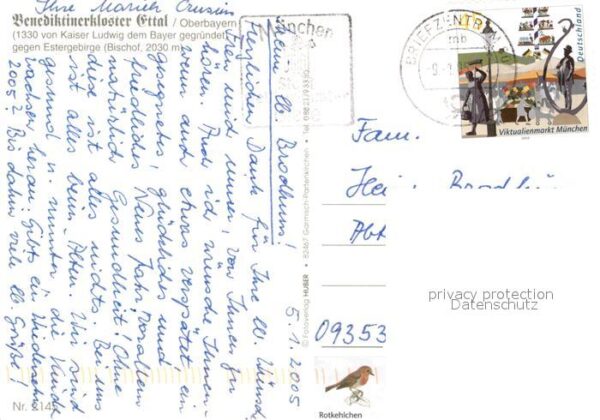 Benediktinerkloster Ettal / Oberbayern
(1330 von Kaiser Ludwig dem Bayer gegründet)
gegen Estergebirge (Bischof, 2030 m)
5.1.2005
Meine lb. Brodhuns!
Herzlichen Dank für Ihre lb. Wünsche.
Freu mich immer, von Ihnen zu
hören. Auch ich wünsche Ihnen,
wenn auch etwas verspätet ein
gesegnetes, glückliches und
friedliches Neues Jahr. Vor allem
natürlich Gesundheit! Ohne
die ist alles nichts. Bei uns
ist alles beim Alten. Wir sind
gesund u. munter u. die Kinder
wachsen heran. Gibt es ein Wiedersehen
2005? Bis dahin viele lb. Grüße!
Ihre Marieh
© Fotoverlag HUBER · 82467 Garmisch-Partenkirchen · Tel.
München
BRIEFZENTRUM
mb
Deutschland
Viktualienmarkt München
Fam.
Abt
09353
privacy protection
Datenschutz
Rotkehlchen
Nr.